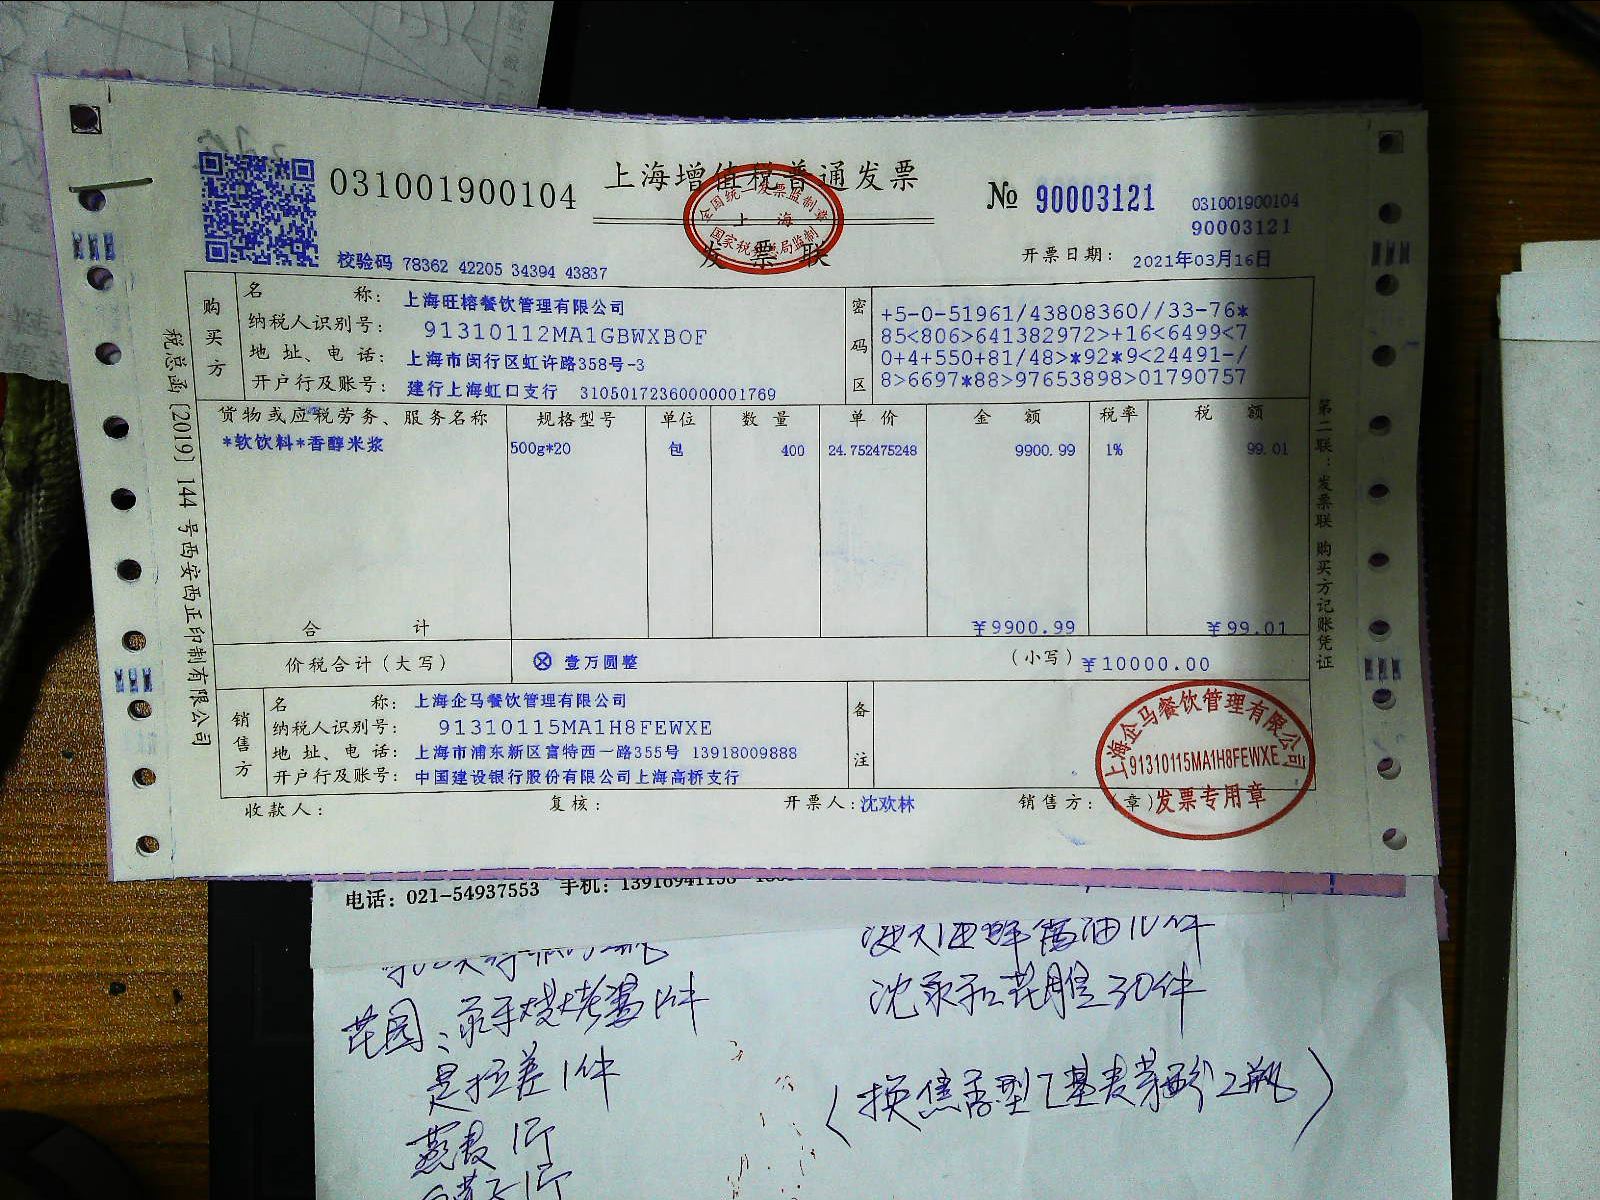 031001900104
上海增值税普通发票
全国统一发票监制章
上海
国家税务总局监制
发票联
№ 90003121
031001900104
90003121
校验码 78362 42205 34394 43837
开票日期： 2021年03月16日
购买方
名 称： 上海旺榕餐饮管理有限公司
纳税人识别号： 91310112MA1GBWXBOF
地 址、电 话： 上海市闵行区虹许路358号-3
开户行及账号： 建行上海虹口支行 31050172360000001769
密码区
+5-0-51961/43808360//33-76*
85<806>641382972>+16<6499<7
0+4+550+81/48>*92*9<24491-/
8>6697*88>97653898>01790757
货物或应税劳务、服务名称 规格型号 单位 数 量 单 价 金 额 税率 税 额
*软饮料*香醇米浆 500g*20 包 400 24.752475248 9900.99 1% 99.01
合 计 ￥9900.99 ￥99.01
价税合计（大写） ⊗ 壹万圆整 （小写）￥10000.00
销售方
名 称： 上海企马餐饮管理有限公司
纳税人识别号： 91310115MA1H8FEWXE
地 址、电 话： 上海市浦东新区富特西一路355号 13918009888
开户行及账号： 中国建设银行股份有限公司上海高桥支行
备注
上海企马餐饮管理有限公司
91310115MA1H8FEWXE
发票专用章
收款人： 复核： 开票人：沈欢林 销售方：（章）
税总函［2019］144号西安西正印制有限公司
第二联：发票联 购买方记账凭证
电话：021-54937553 手机：
花园、
是拉差1件
沈永和花雕30件